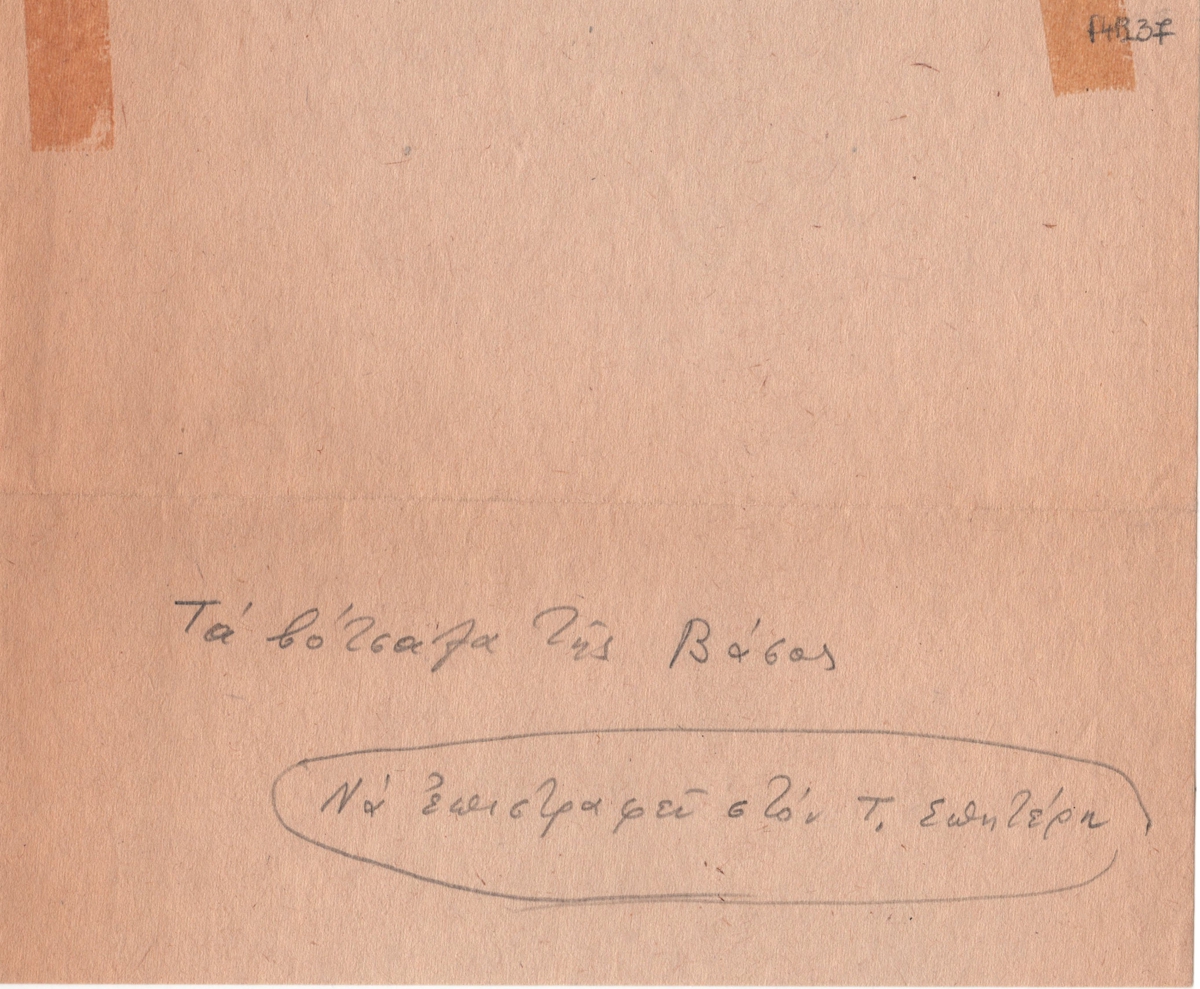 Τά βότσαλα τῆς Βάσως
Νά ἐπιστραφεῖ στόν Τ. Σπητέρη